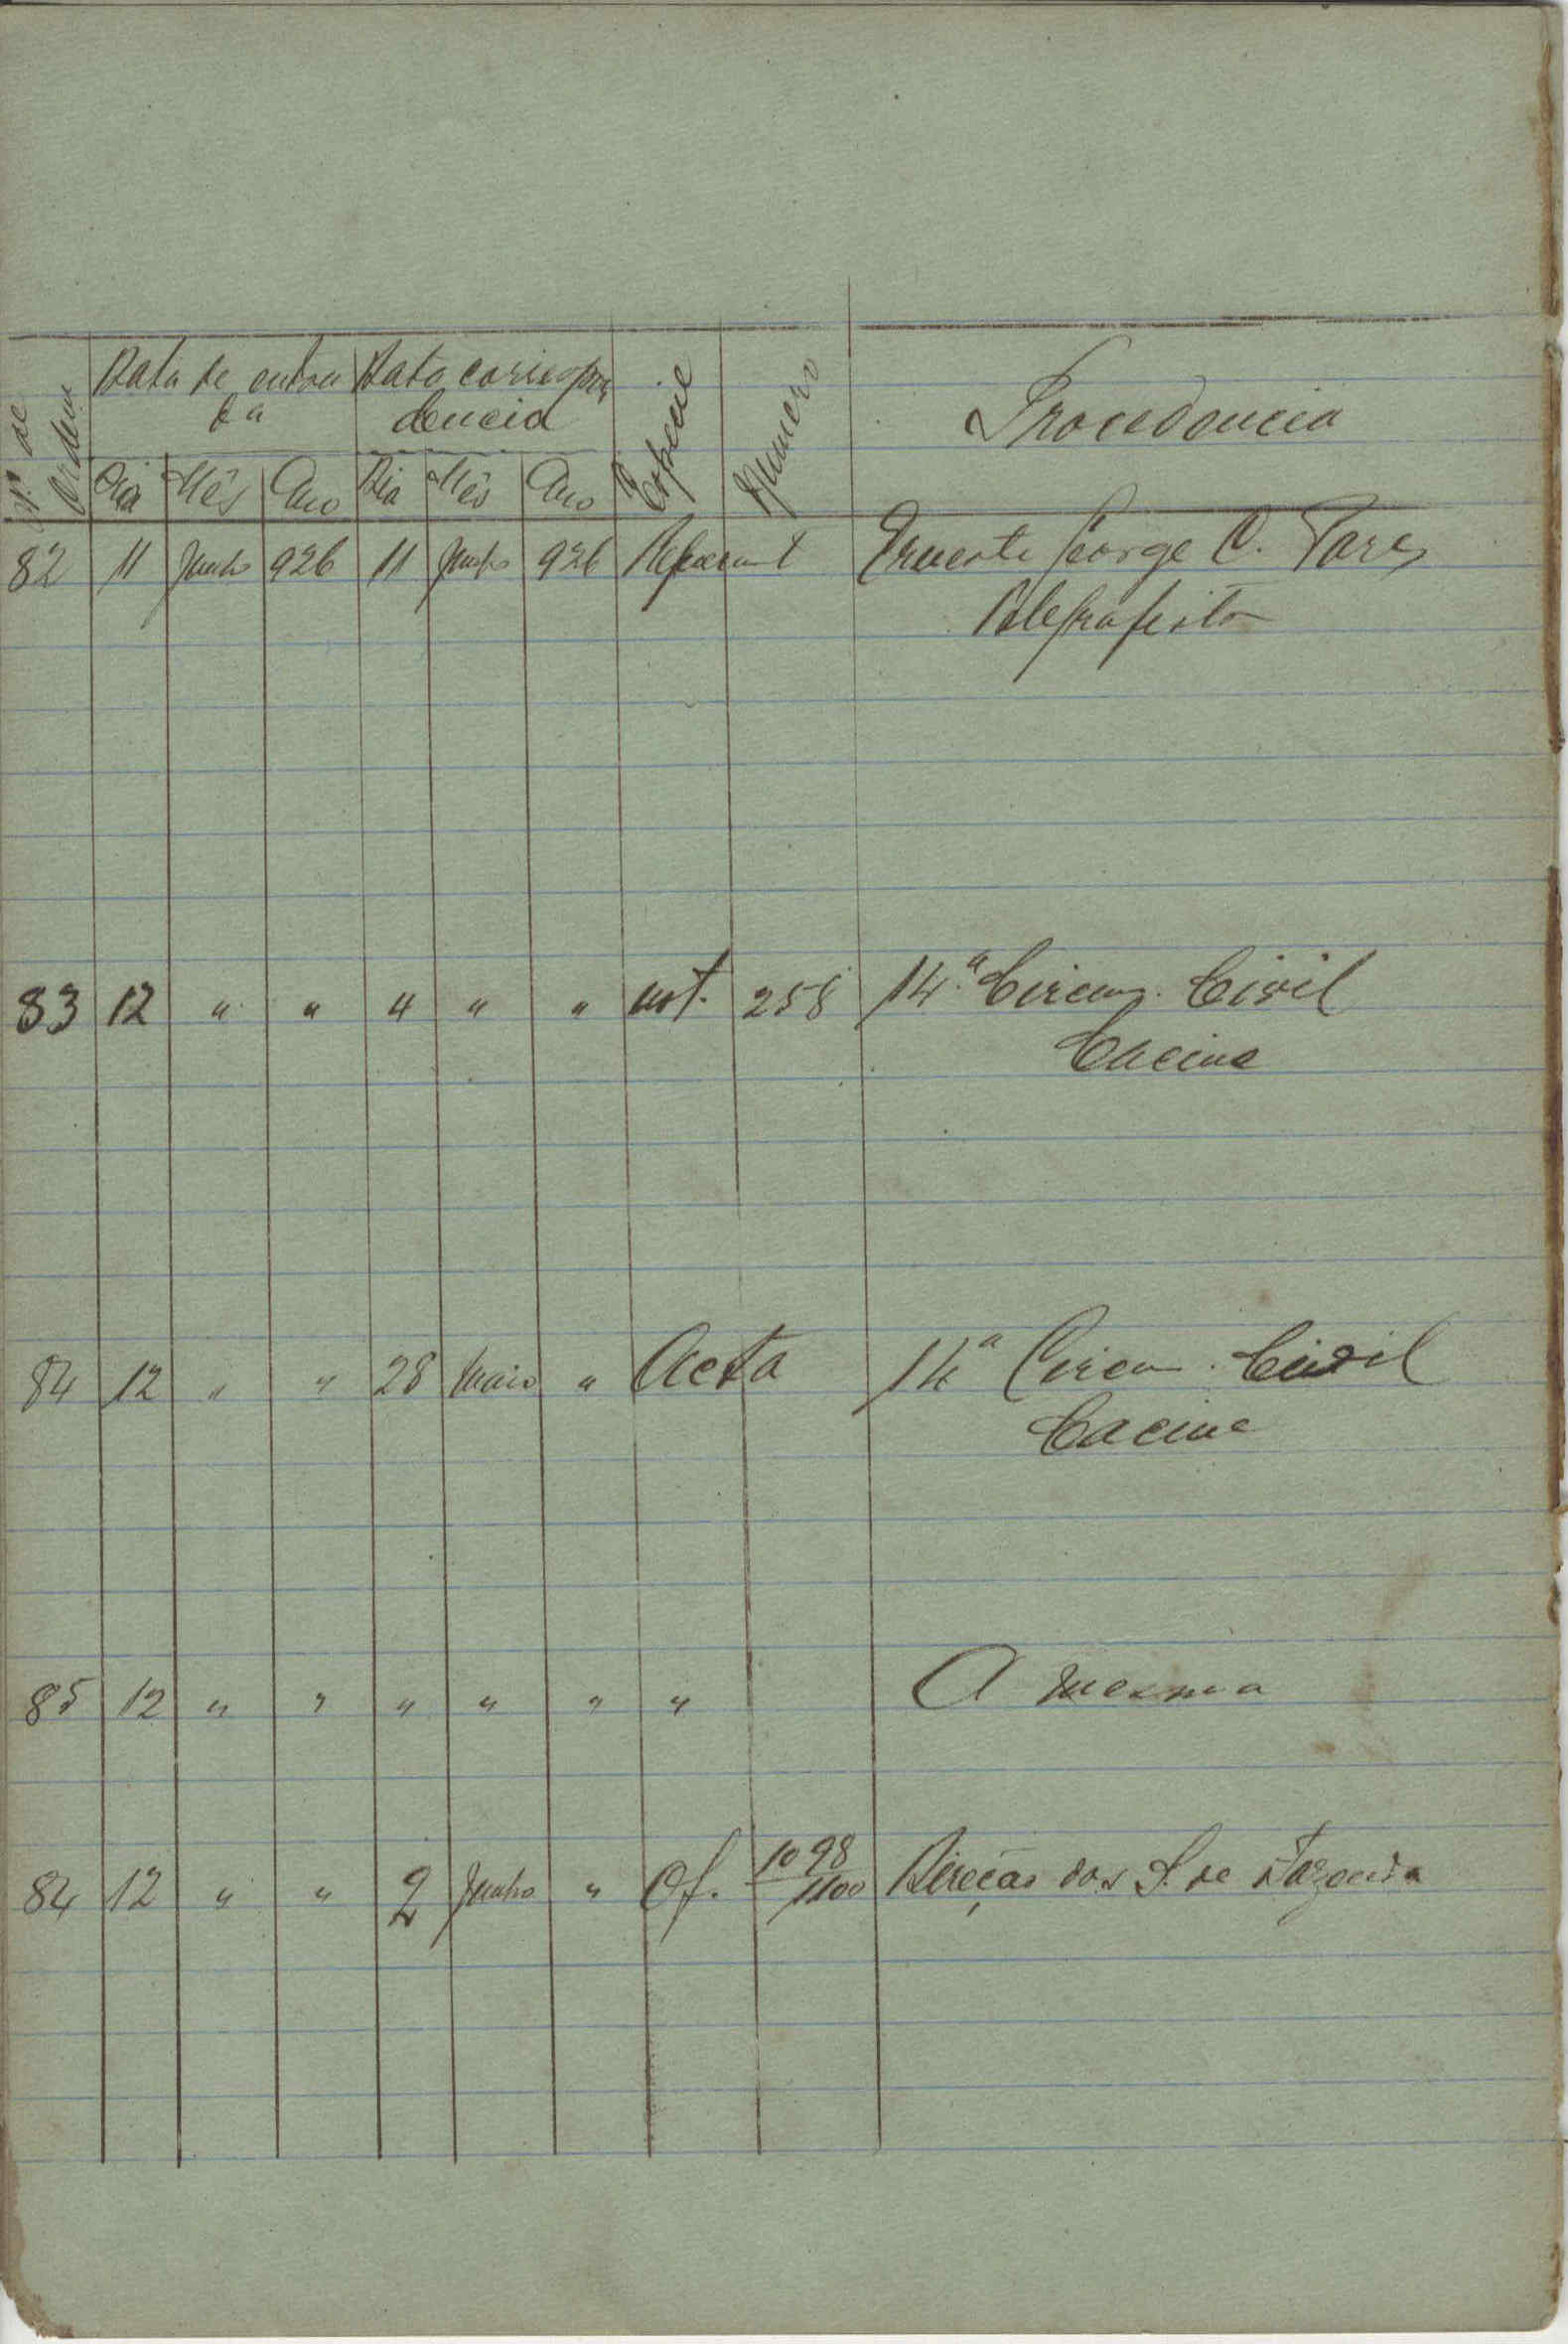 Nº de Ordem Data de entra Data corespon Especie Numero Procedencia
da dencia
Dia Mês Ano Dia Mês Ano
82 11 Junho 926 11 Junho 926 George C.
83 12 " " " " " not. 258 14.ª Circuns. Civil
Cacine
84 12 " " 28 Maio " Acta 14ª Circun. Civil
Cacine
85 12 " " " " " " A mesma
84 12 " " 2 Junho " Of. 1098/1100 Direção dos S. de Fazenda